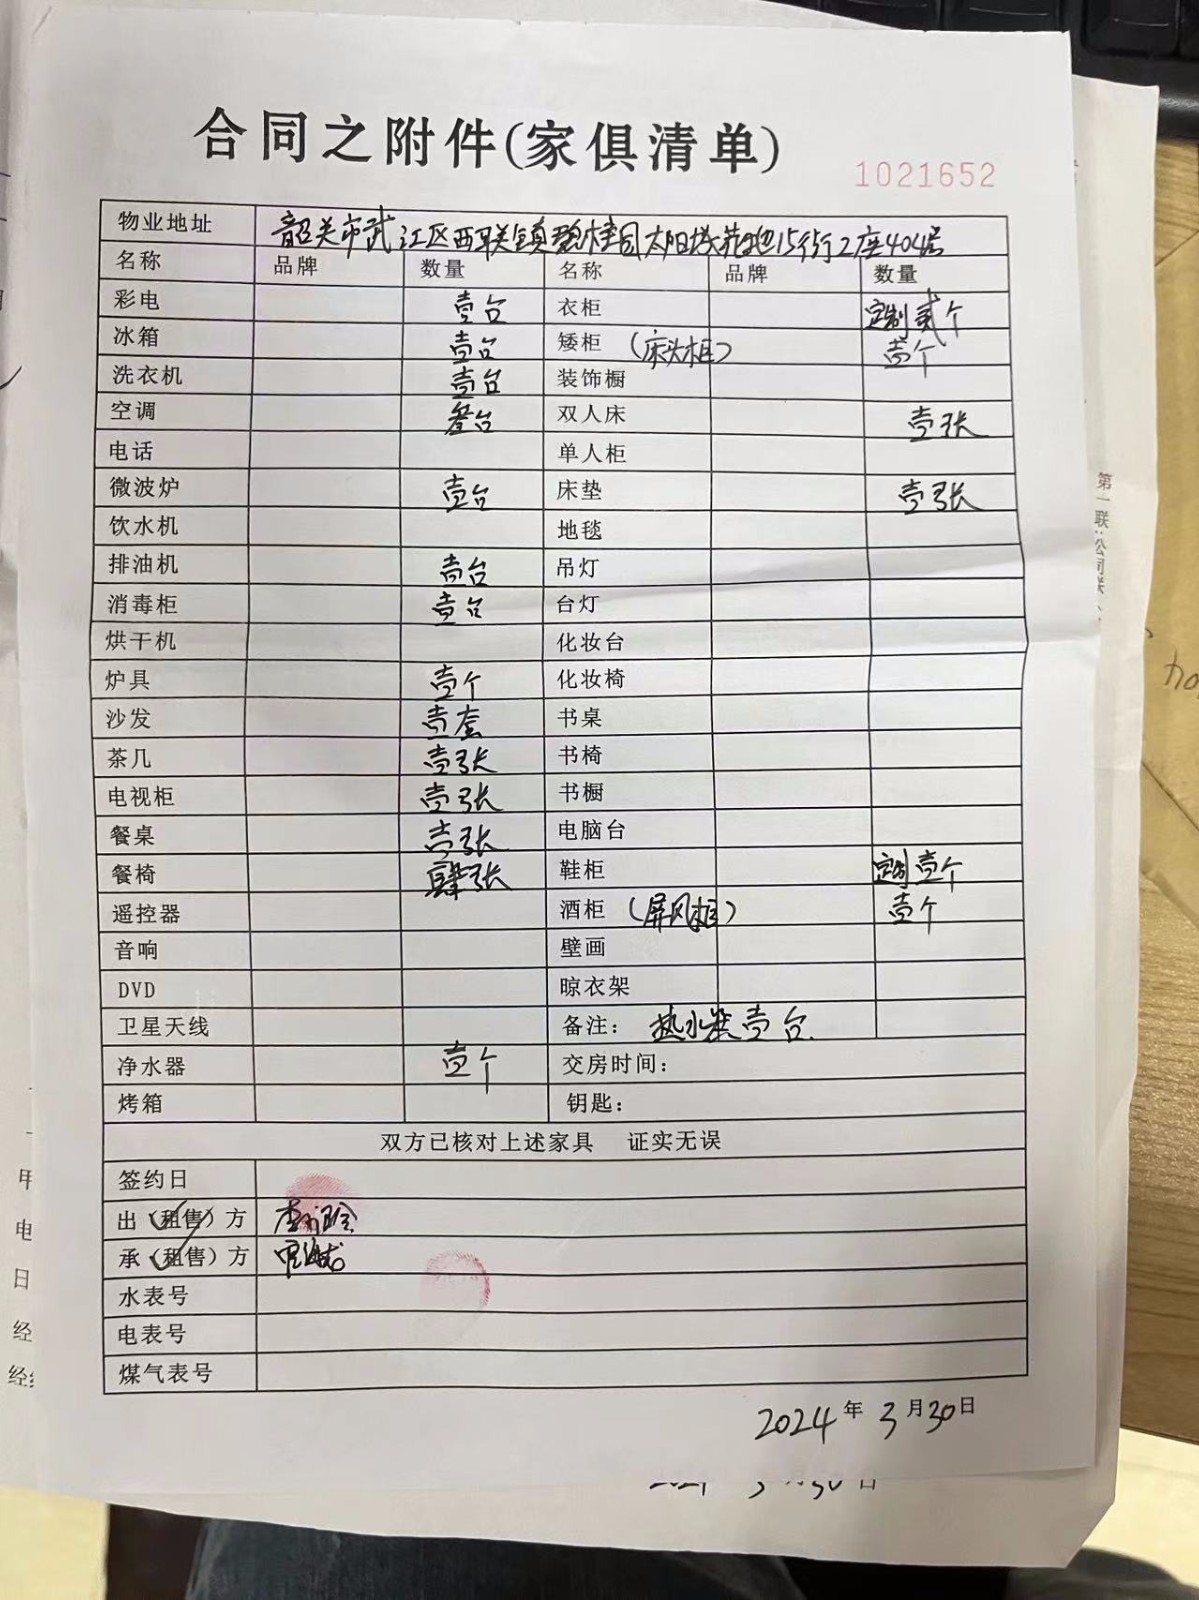 合同之附件(家俱清单)
1021652
物业地址 韶关市武江区西联镇碧桂园太阳城花地15街2座404房
名称 品牌 数量 名称 品牌 数量
彩电 壹台 衣柜 定制贰个
冰箱 壹台 矮柜 (床头柜) 壹个
洗衣机 壹台 装饰橱
空调 叁台 双人床 壹张
电话 单人柜
微波炉 壹台 床垫 壹张
饮水机 地毯
排油机 壹台 吊灯
消毒柜 壹台 台灯
烘干机 化妆台
炉具 壹个 化妆椅
沙发 壹套 书桌
茶几 壹张 书椅
电视柜 壹张 书橱
餐桌 壹张 电脑台
餐椅 肆张 鞋柜 定制壹个
遥控器 酒柜 (屏风柜) 壹个
音响 壁画
DVD 晾衣架
卫星天线 备注: 热水器壹台.
净水器 壹个 交房时间:
烤箱 钥匙:
双方已核对上述家具 证实无误
签约日
出(租售)方
承(租售)方
水表号
电表号
煤气表号
2024年3月30日
第一联:公司联
甲
电
日
经
经